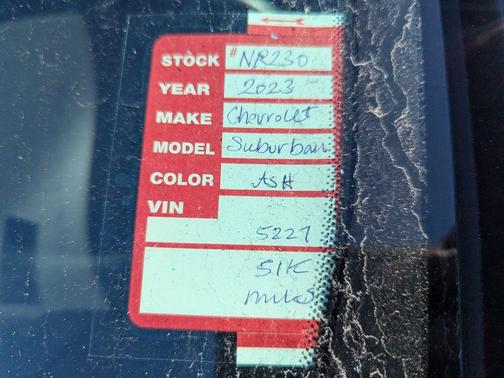 STOCK # NR230
YEAR 2023
MAKE Chevrolet
MODEL Suburban
COLOR ASH
VIN
5227
51K
miles